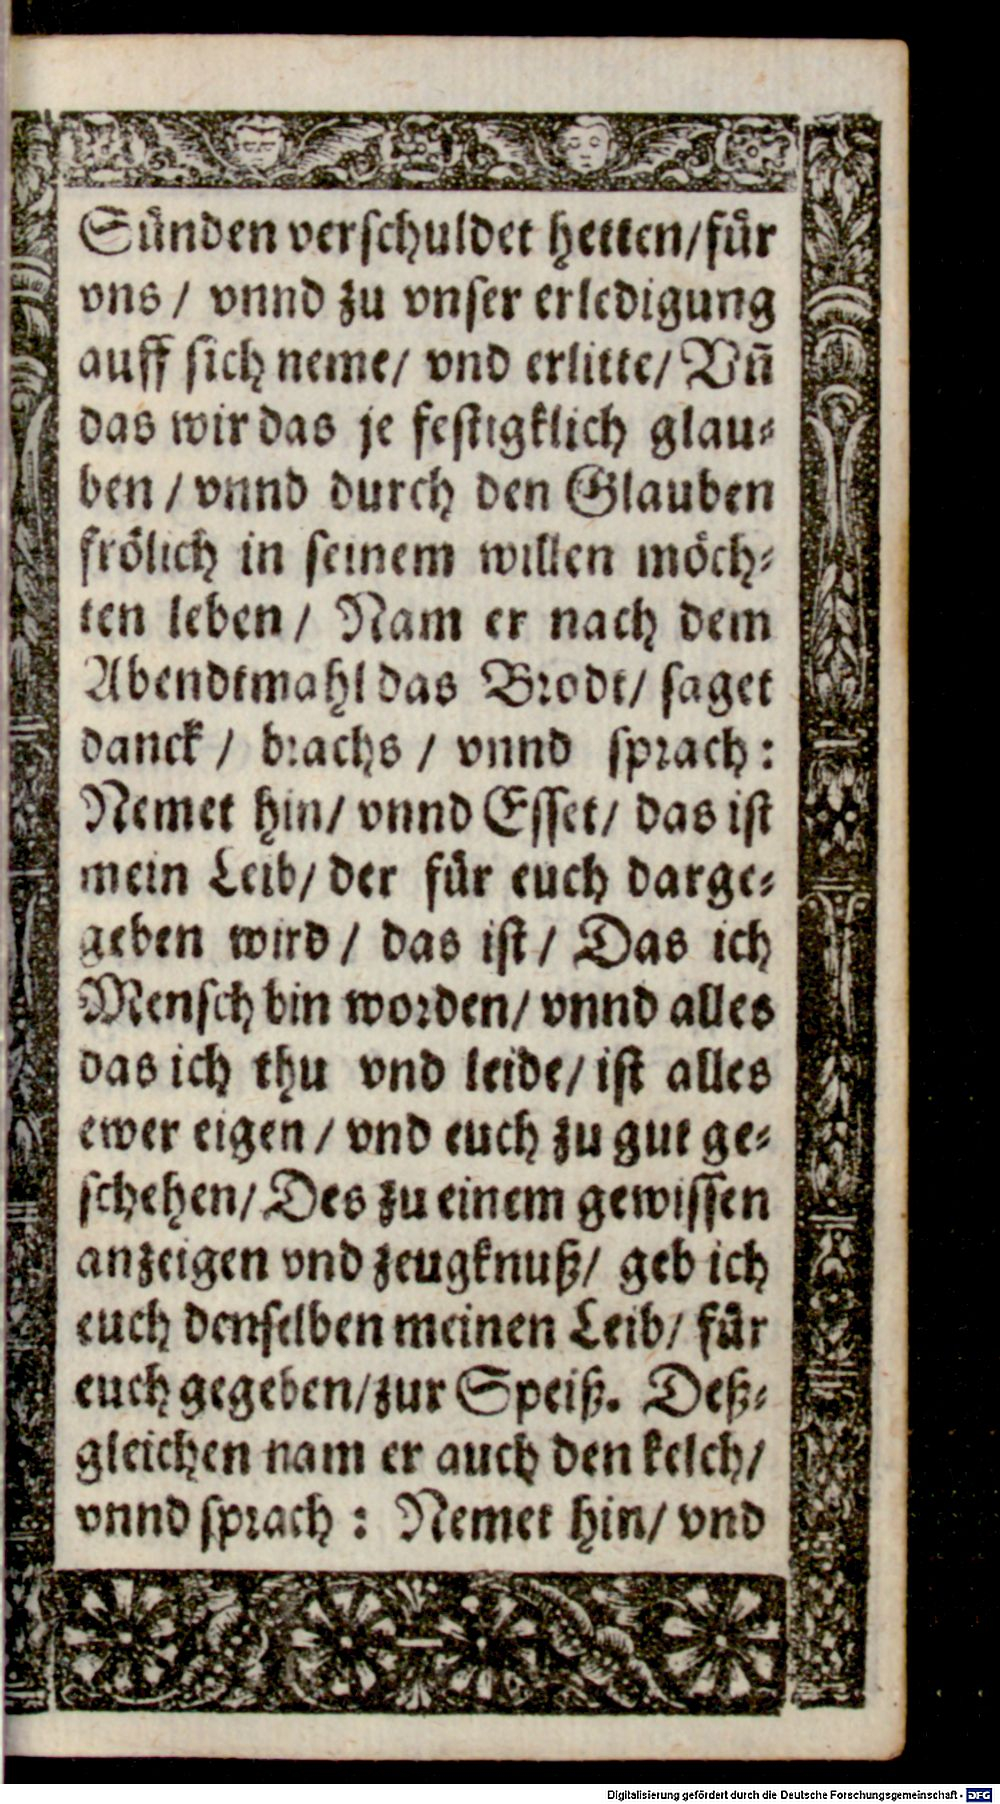 Sünden verschuldet hetten/ für
vns / vnnd zu vnser erledigung
auff sich neme/ vnd erlitte/ Vñ
das wir das je festigklich glau-
ben / vnnd durch den Glauben
frölich in seinem willen möch-
ten leben / Nam er nach dem
Abendtmahl das Brodt/ saget
danck / brachs / vnnd sprach:
Nemet hin/ vnnd Esset/ das ist
mein Leib/ der für euch darge-
geben wird / das ist / Das ich
Mensch bin worden/ vnnd alles
das ich thu vnd leide/ ist alles
ewer eigen / vnd euch zu gut ge-
schehen/ Des zu einem gewissen
anzeigen vnd zeugknuß/ geb ich
euch denselben meinen Leib/ für
euch gegeben/ zur Speiß. Deß-
gleichen nam er auch den kelch/
vnnd sprach : Nemet hin/ vnd
Digitalisierung gefördert durch die Deutsche Forschungsgemeinschaft - DFG